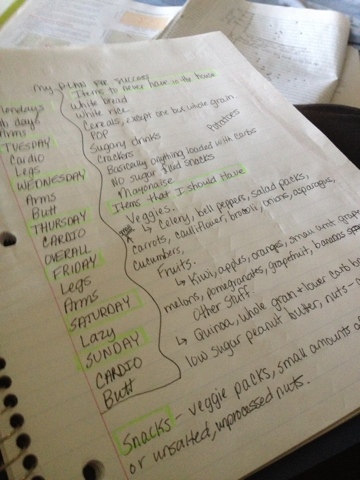 My Plan for success
Items to never have in the house
White bread
White rice
Cereals, except one but whole grain
POP
Sugary drinks
Potatoes
Crackers
Basically anything loaded with carbs
NO sugar filled snacks
Mayonaise
Items that I should have
Veggies:
↳ Celery, bell peppers, salad packs,
carrots, cauliflower, broccoli, onions, asparagus,
cucumbers,
Fruits:
↳ Kiwi, apples, oranges, small amt grapes
melons, pomegranates, grapefruit, bananas
Other stuff
↳ Quinoa, whole grain + lower carb
low sugar peanut butter, nuts -
Snacks - veggie packs, small amounts of
or unsalted, unprocessed nuts.
Mondays
Ab days
Arms
TUESDAY
Cardio
Legs
WEDNESDAY
Arms
Butt
THURSDAY
CARDIO
OVERALL
FRIDAY
Legs
Arms
SATURDAY
Lazy
SUNDAY
CARDIO
Butt